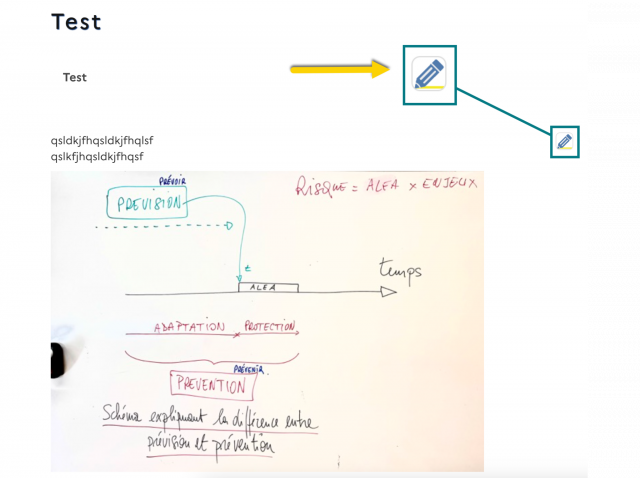 Test
Test
qsldkjfhqsldkjfhqlsf
qslkfjhqsldkjfhqsf
PRÉVOIR
PREVISION
RISQUE = ALEA x ENJEUX
t
ALEA
temps
ADAPTATION x PROTECTION
PRÉVENIR.
PREVENTION
Schéma expliquant la différence entre
prévision et prévention